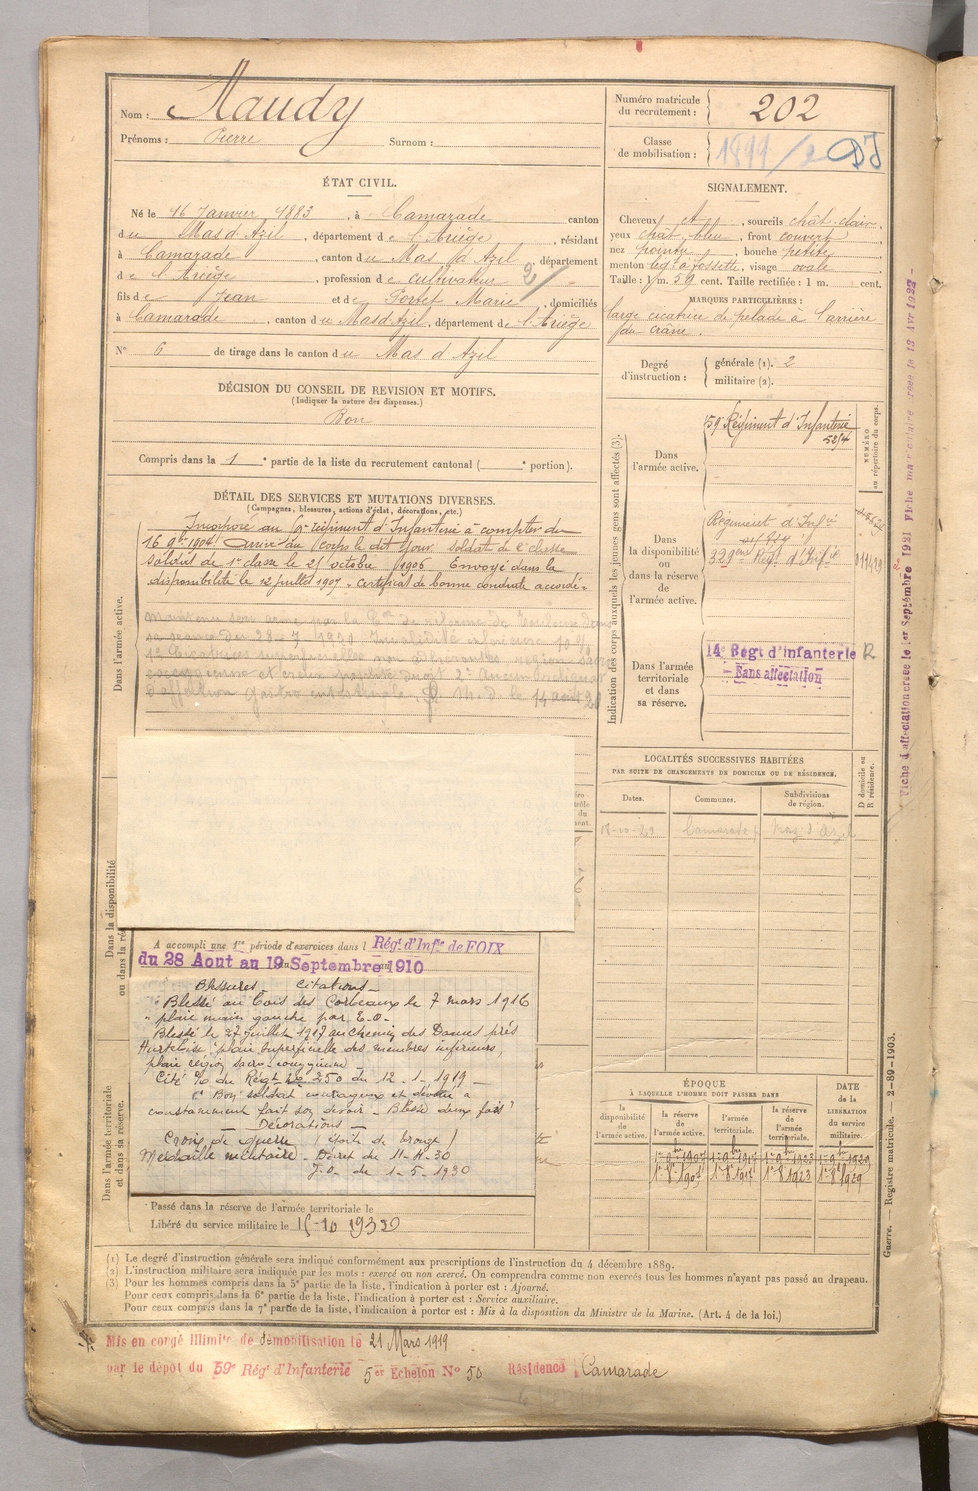 Nom : Naudy
Prénoms : Pierre Surnom :
Numéro matricule du recrutement : 202
Classe de mobilisation : 1899 / 2 DJ
ÉTAT CIVIL.
Né le 16 Janvier 1883, à Camarade canton
du Mas d'Azil, département de l'Ariège, résidant
à Camarade, canton du Mas d'Azil, département
de l'Ariège, profession de cultivateur 2/
fils de Jean et de Portet Marie, domiciliés
à Camarade, canton du Mas d'Azil, département de l'Ariège
N° 6 de tirage dans le canton du Mas d'Azil
SIGNALEMENT.
Cheveux, sourcils chât. clair,
yeux chât. bleu, front couvert
nez pointu, bouche petite,
menton à fossette, visage ovale
Taille : 1 m. 59 cent. Taille rectifiée : 1 m. cent.
MARQUES PARTICULIÈRES :
large cicatrice de pelade à l'arrière
du crâne.
Degré d'instruction : générale (1). 2
militaire (2).
DÉCISION DU CONSEIL DE REVISION ET MOTIFS.
(Indiquer la nature des dispenses.)
Bon
Compris dans la 1e partie de la liste du recrutement cantonal ( e portion).
DÉTAIL DES SERVICES ET MUTATIONS DIVERSES.
(Campagnes, blessures, actions d'éclat, décorations, etc.)
Dans l'armée active.
Incorporé au 59e régiment d'Infanterie à compter du
16 9bre 1904 Arrivé au corps le dit jour. soldat de 2e classe
soldat de 1e classe le 21 octobre 1906. Envoyé dans la
disponibilité le 12 juillet 1907. Certificat de bonne conduite accordé.
Maintenu serv. armé par la Con de réforme de Toulouse Dans
sa séance du 28-7-1920 Invalidité inférieure 10 %
1° Cicatrices superficielles non adhérentes région
14 août 20
Indication des corps auxquels les jeunes gens sont affectés (3).
Dans l'armée active.
59e Régiment d'Infanterie
NUMÉRO au répertoire du corps.
Dans la disponibilité ou dans la réserve de l'armée active.
Régiment d'Infie
Régt d'Infie
Dans l'armée territoriale et dans sa réserve.
14e Régt d'infanterie R
Sans affectation
LOCALITÉS SUCCESSIVES HABITÉES
PAR SUITE DE CHANGEMENTS DE DOMICILE OU DE RÉSIDENCE.
Dates. Communes. Subdivisions de région. D domicile ou R résidence.
18-10-29 Camarade Mas d'Azil
Dans la disponibilité
A accompli une 1re période d'exercices dans l Régt d'Infie de FOIX
du 28 Aout au 19 Septembre 1910
Blessures - Citations -
Blessé au bois des Corbeaux le 7 mars 1916
"plaie main gauche par E.O."
Blessé le 27 juillet 1917 au Chemin des Dames près
Hurtebise "plaie superficielle des membres inférieurs,
plaie région sacro-coccygienne"
Cité % du Régt No 250 du 12-1-1919 -
"Bon soldat courageux et dévoué a
constamment fait son devoir - Blessé deux fois"
- Décorations -
Croix de guerre (étoile de bronze)
Médaille militaire - Décret du 11-4-30
J.O. du 1-5-1930
Dans l'armée territoriale et dans sa réserve.
Passé dans la réserve de l'armée territoriale le
Libéré du service militaire le 15-10 1932
ÉPOQUE
À LAQUELLE L'HOMME DOIT PASSER DANS
la disponibilité de l'armée active. la réserve de l'armée active. l'armée territoriale. la réserve de l'armée territoriale.
DATE de la LIBÉRATION du service militaire.
1er 8bre 1907 1er 8bre 1917 1er 8bre 1923 1er 8bre 1929
(1) Le degré d'instruction générale sera indiqué conformément aux prescriptions de l'instruction du 4 décembre 1889.
(2) L'instruction militaire sera indiquée par les mots : exercé ou non exercé. On comprendra comme non exercés tous les hommes n'ayant pas passé au drapeau.
(3) Pour les hommes compris dans la 5e partie de la liste, l'indication à porter est : Ajourné.
Pour ceux compris dans la 6e partie de la liste, l'indication à porter est : Service auxiliaire.
Pour ceux compris dans la 7e partie de la liste, l'indication à porter est : Mis à la disposition du Ministre de la Marine. (Art. 4 de la loi.)
Mis en congé illimité de démobilisation le 21 Mars 1919
par le dépôt du 59e Régt d'Infanterie 5er Echelon N° 50 Résidence Camarade
Guerre. — Registre matricule. — 2-89-1903.
Fiche d'affectation créée le 1er Septembre 1921 Fiche matriculaire créée le 13 Avr 1922 -